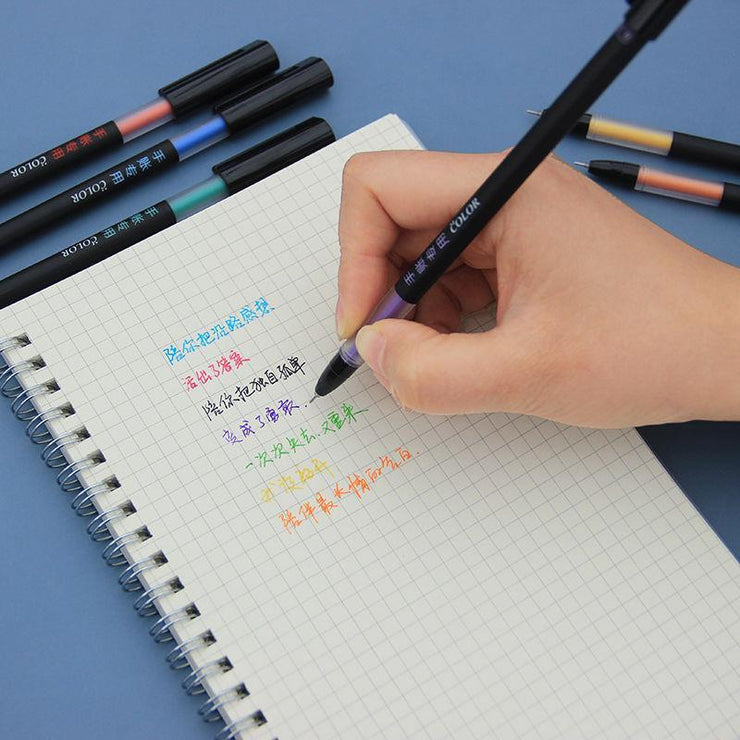 COLOR 手帐专用
COLOR 手帐专用
COLOR 手帐专用
手帐专用 COLOR
陪你把沿路感想
活出了答案
陪你把独自孤单
变成了勇敢
一次次失去又重来
我没离开
陪伴最长情的告白